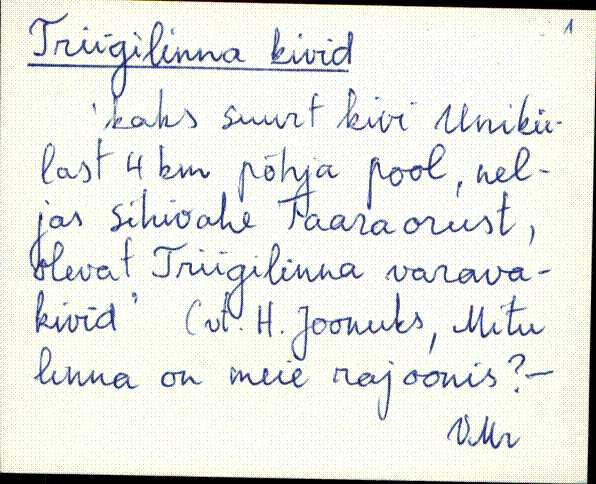 1
Triigilinna kivid
'kaks suurt kivi Unikü-
last 4 km põhja pool, nel-
jas sihivahe Taaraorust,
olevat Triigilinna varava-
kivid' (vt. H. Joonuks, Mitu
linna on meie rajoonis? -
VMr